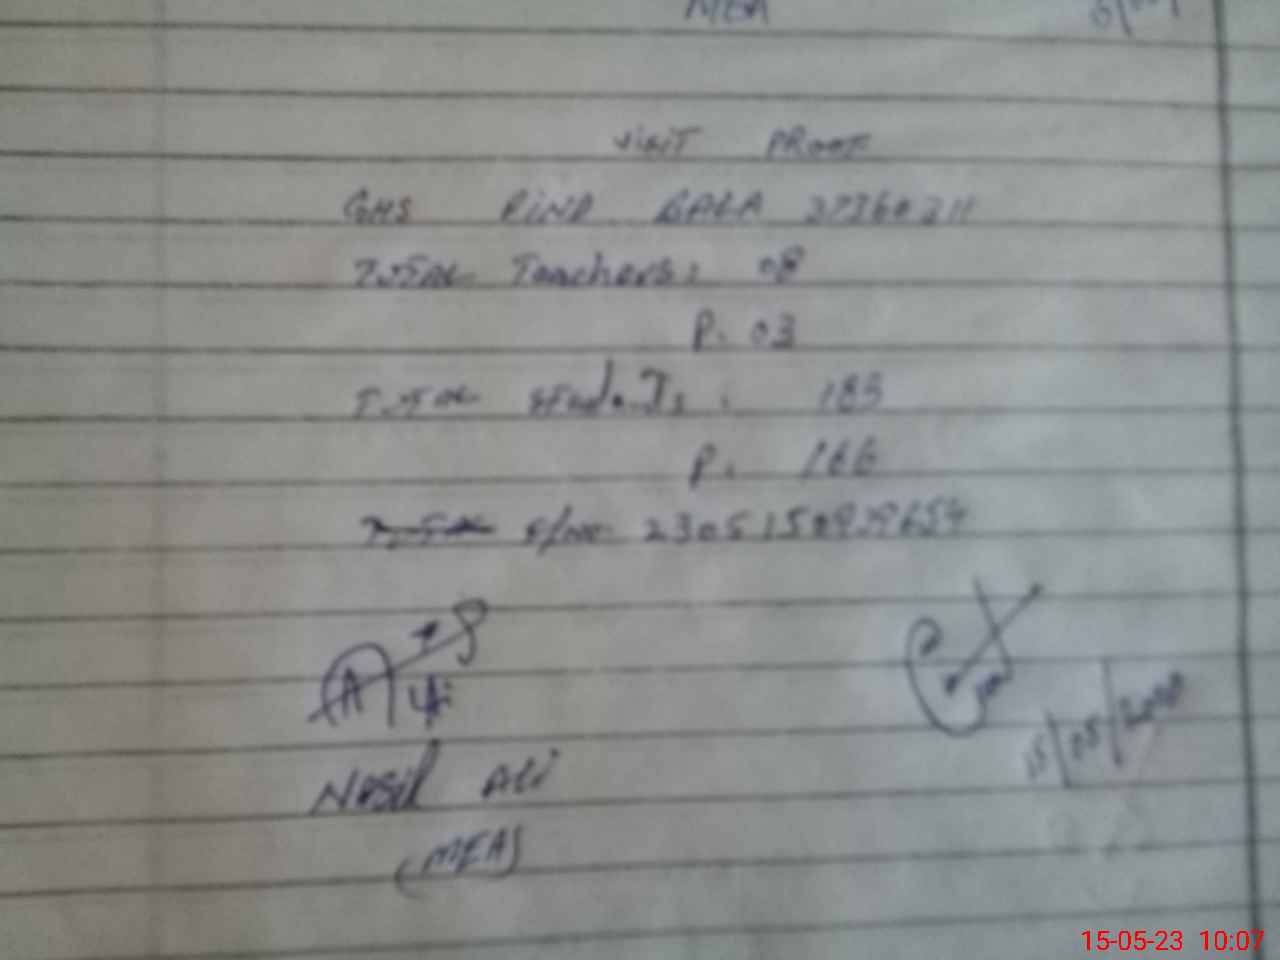 MEA
VISIT PROOF
GHS PIND BALA 37360311
TOTAL Teachers: 08
P. 03
TOTAL Students: 185
P. 166
S/No 230515092
Ali
(MEA)
15/05/
15-05-23 10:07